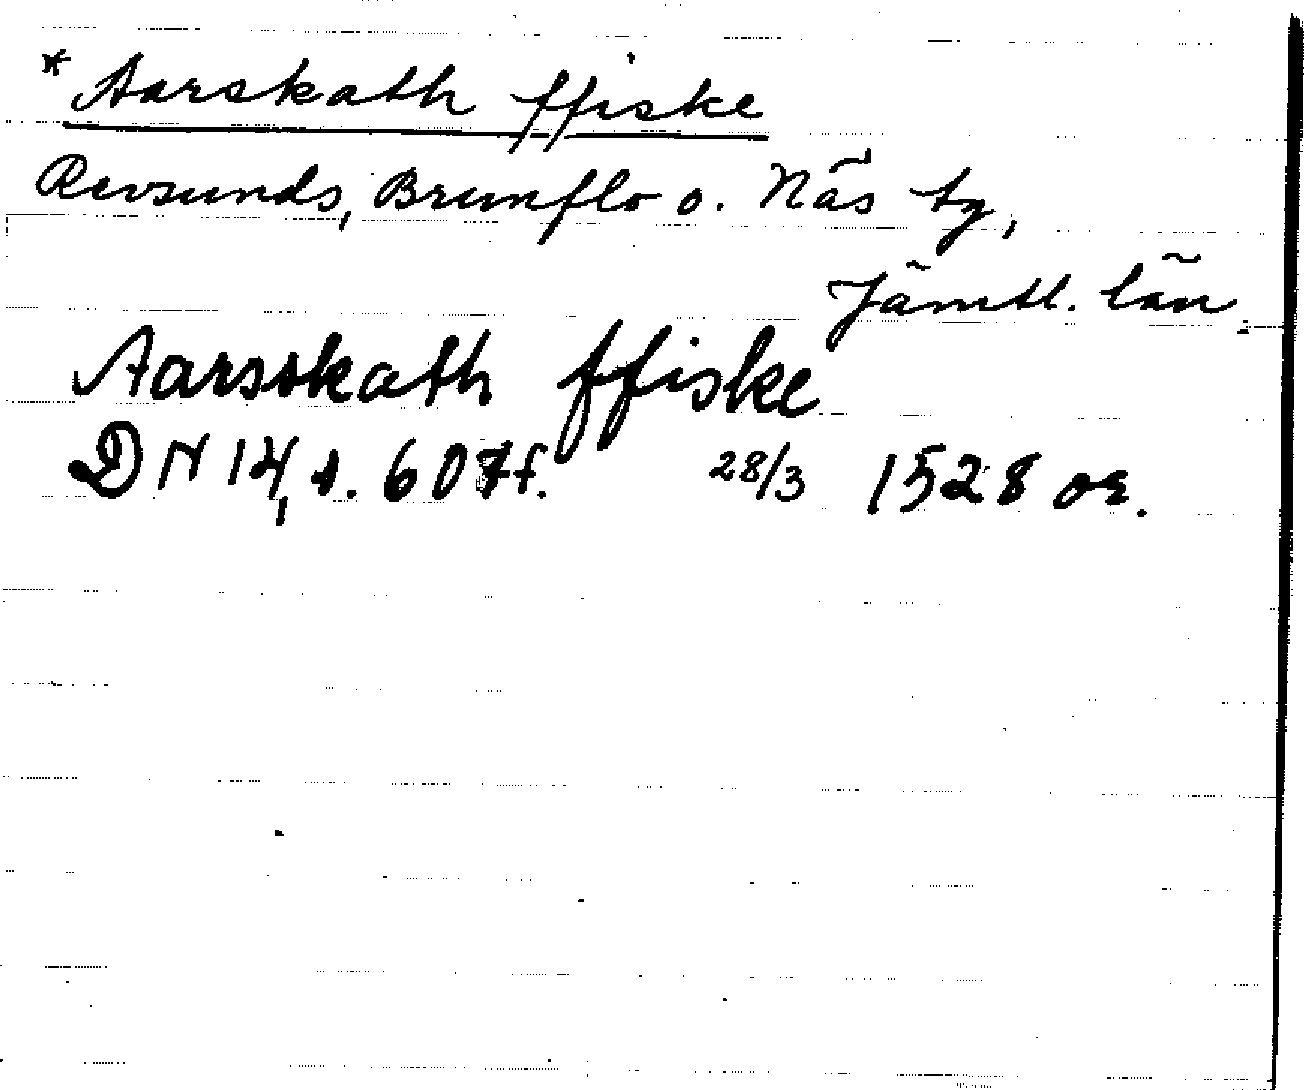 * Aarskath ffiske
Revsunds, Brunflo o. Näs tg,
Jämtl. län
Aarsskath ffiske
DN 14, s. 607 f. 28/3 1528 or.